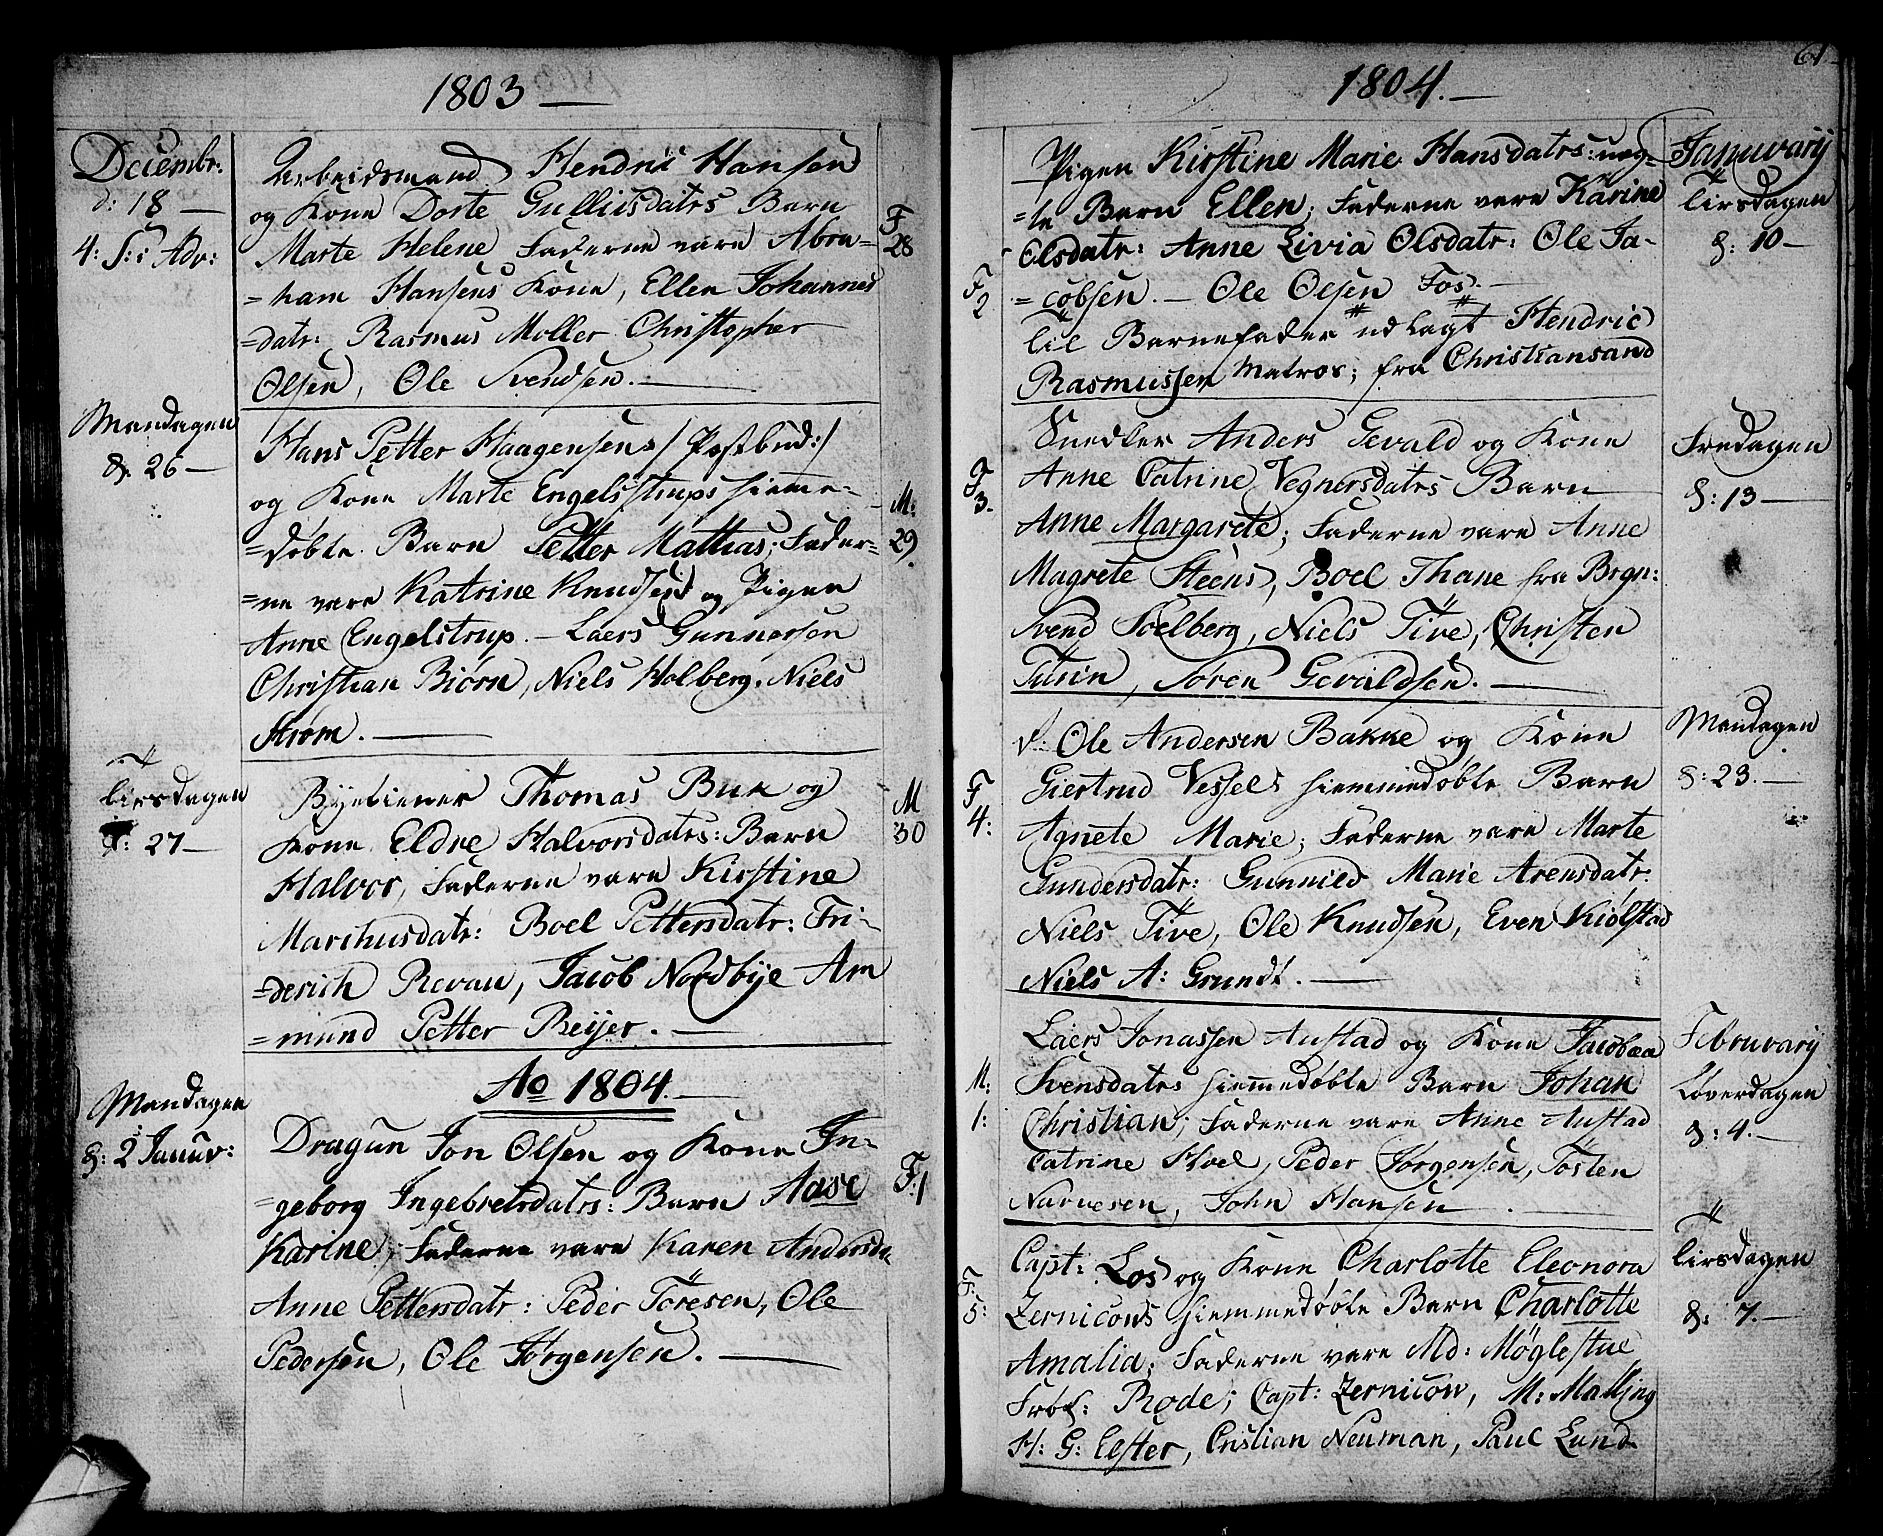 1803 —
Decembr:
d: 18 —
4: S: i Adv:
Arbeidsmand Hendric Hansen
og Kone Dorte Gulliksdatrs Barn
Marte Helene Fadderne vare Abra-
=ham Hansens Kone, Ellen Johannes
=datr: Rasmus Moller Christopher
Olsen, Ole Svendsen. —
F
28
Mandagen
d. 26 —
Hans Petter Haagensens /: Postbud :/
og Kone Marte Engelstrups hieme-
=døbte Barn Petter Mathias; Fadder-
=ne vare Katrine Knudsen og Pigen
Anne Engelstrup. — Laers Gunnersen
Christian Biørn, Niels Holberg. Niels
Strøm. —
M:
29.
Tirsdagen
d: 27 —
Byetiener Thomas Buk og
Kone Eldre Halvorsdatrs: Barn
Halvor, Fadderne vare Kirstine
Marchusdatr: Boel Pettersdatr: Fri-
=derich Revau, Jacob Nordbye Am
=mund Petter Reyer. —
M
30
Ao 1804. —
Mandagen
d: 2 Januv:
Dragun Jon Olsen og Kone In-
=geborg Ingebretsdatrs: Barn Aase
Karine; Fadderne vare Karen Andersda.
Anne Pettersdatr: Peder Toresen, Ole
Pedersen, Ole Jørgensen. —
F: 1
61
1804. —
Januvary
Tirsdagen
d: 10 —
Pigen Kirstine Marie Hansdatrs: uæg-
=te Barn Ellen; Fadderne vare Karine
Olsdatr: Anne Livia Olsdatr: Ole Ja-
=cobsen. — Ole Olsen Fos. —
til Barnefader udlagt Hendric
Rasmussen Matros; fra Christiansand
F
2
Fredagen
d: 13 —
Snedker Anders Gevald og Kone
Anne Catrine Vegnersdatrs Barn
Anne Margarete; Fadderne vare Anne
Magrete Steens, Boel Thane fra Brgn:
Svend Soelberg, Niels Tive, Christen
Tutin, Søren Gevaldsen. —
F
3.
Mandagen
d: 23. —
Ole Andersen Bakke og Kone
Giertrud Vessels hiemmedøbte Barn
Agnete Marie; Fadderne vare Marte
Gundersdatr: Gunnild Marie Arensdatr:
Niels Tive, Ole Knudsen, Even Kiølstad
Niels A: Grundt. —
F
4:
Februvary
Løverdagen
d: 4. —
Laers Jonassen Austad og Kone Jacobaa
Svensdatrs hiemmedøbte Barn Johan
Christian; Fadderne vare Anne Austad
Catrine Hoel, Peder Jørgensen, Tosten
Narvesen, John Hansen. —
M:
1:
Tirsdagen
d: 7. —
Capt: Los og Kone Charlotte Eleonora
Zernicows hiemmedøbte Barn Charlotte
Amalia; Fadderne vare Md: Møglestue
Frøk: Rode; Capt: Zernicow, M: Malling
H: G: Elster, Cristian Neuman, Paul Lund
F:
5: